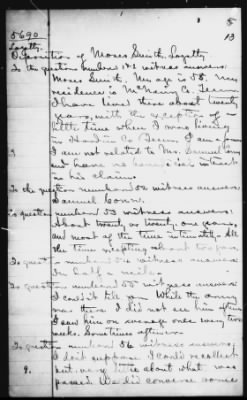 5
13
5690
Loyalty
Deposition of Moses Smith. Loyalty
To the question numbered 1 & 2 witness answers:
Moses Smith. My age is 58. My
residence is McNairy Co. Tenn.
I have lived there about twenty
years, with the exception of a
little time when I was living
in Hardin Co. Tenn. I am
I am not related to Mr. Samuel
and have no interest
in his claim.
To the question numbered 52 witness answers:
Samuel
To question numbered 53 witness answers:
About twenty or twenty one years,
and most of the time intimately. All
the time excepting about two years.
To question numbered 54 witness answers
In half a mile.
To question numbered 55 witness answers
I couldn't tell you. While the army
was there I did not see him often.
I saw him on average once every two
weeks. Sometimes oftener.
To question numbered 56 witness answers;
I do it suppose I could recollect
but very little about what was
passed